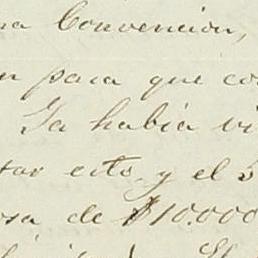 na Convencion,
n para que co
Ya habia vi
tar esto, y el 5
osa de $10.000